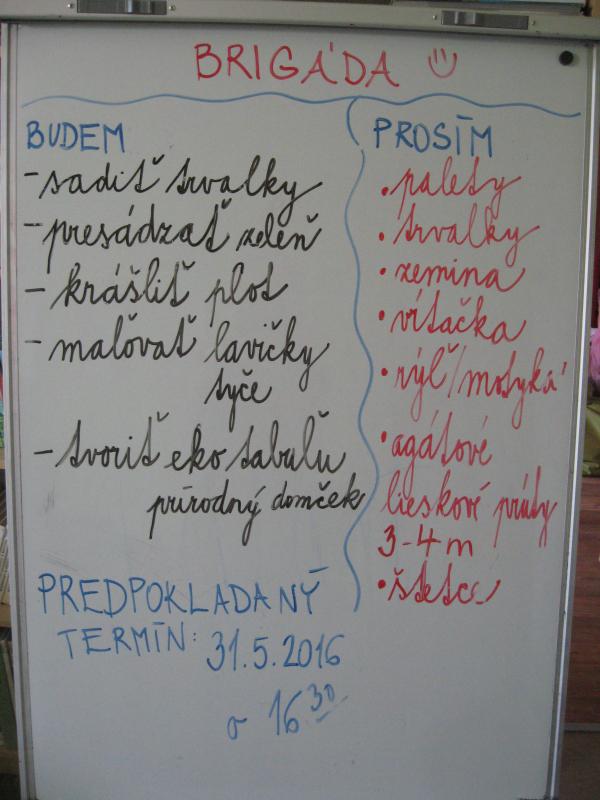 BRIGÁDA
BUDEM
- sadiť trvalky
- presádzať zeleň
- krášliť plot
- maľovať lavičky
tyče
- tvoriť eko tabuľu
prírodný domček
PREDPOKLADANÝ
TERMÍN: 31.5.2016
o 16 30
PROSÍM
• palety
• trvalky
• zemina
• vŕtačka
• rýľ/motyka
• agátové
lieskové prúty
3-4 m
• štetce